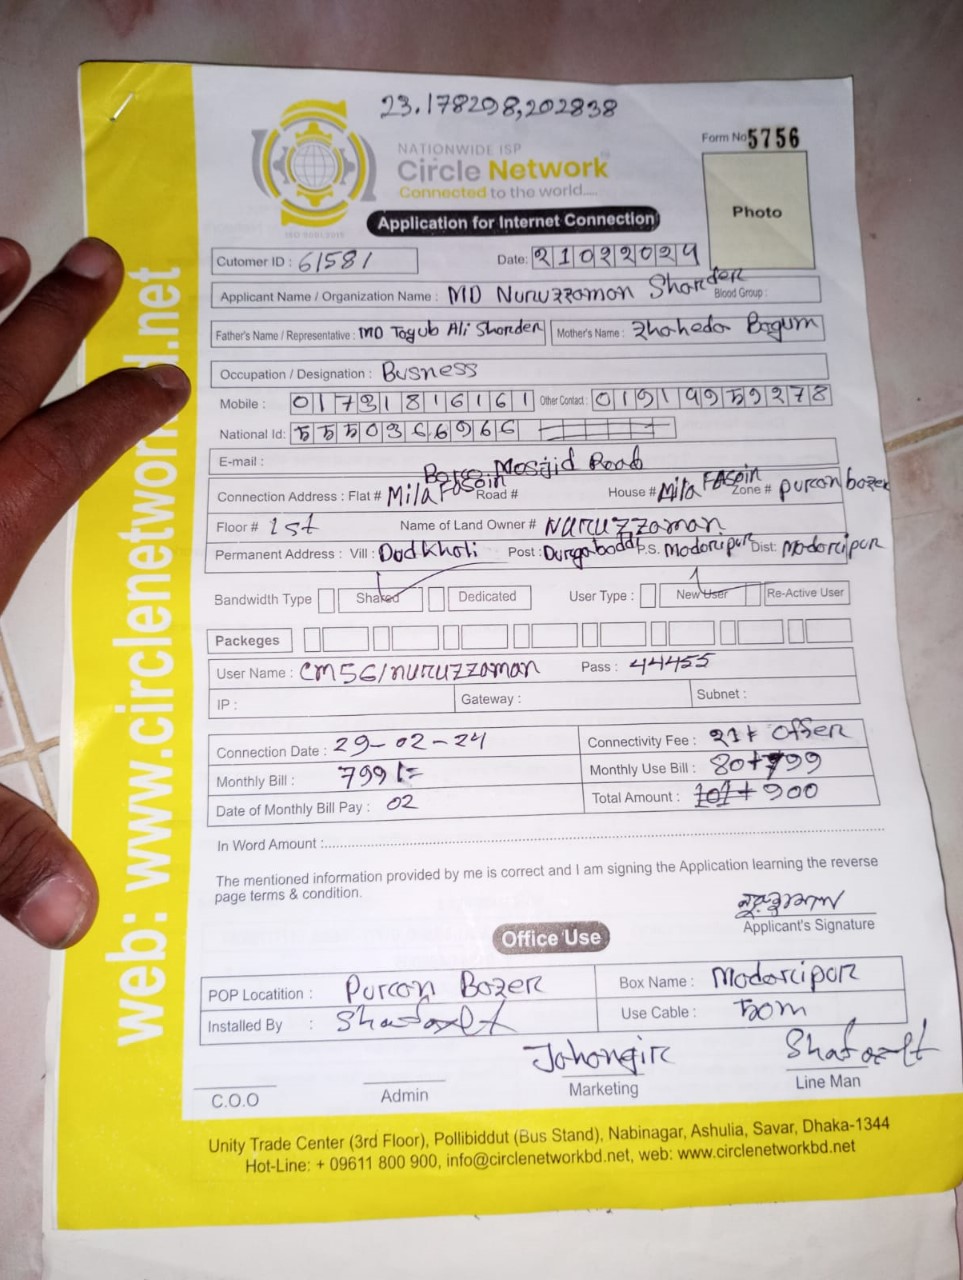 23.178298,202838
Form No 5756
NATIONWIDE ISP
Circle Network
Connected to the world....
ISO 9001:2015
Application for Internet Connection
Photo
Cutomer ID : 61581 Date: 21022024
Applicant Name / Organization Name : MD Nuruzzaman Sharder Blood Group :
Father's Name / Representative : MD Toyub Ali Sharder Mother's Name : Zhaheda Begum
Occupation / Designation : Busness
Mobile : 01731816161 Other Contact : 01919959278
National Id: 5550366966
E-mail :
Mosjid Road
Connection Address : Flat # Mila Fasoin Road # House # Mila Fasoin Zone # purcan bazer
Floor # 1st Name of Land Owner # Nuruzzaman
Permanent Address : Vill : Dudkhali Post : Durgaboddi P.S. Modaripur Dist: Modarcipur
Bandwidth Type Shared Dedicated User Type : New User Re-Active User
Packeges
User Name : CM56/nuruzzaman Pass : 44455
IP : Gateway : Subnet :
Connection Date : 29-02-24 Connectivity Fee : 21t Offer
Monthly Bill : 799/= Monthly Use Bill : 80+799
Date of Monthly Bill Pay : 02 Total Amount : 101+900
In Word Amount :
The mentioned information provided by me is correct and I am signing the Application learning the reverse
page terms & condition.
Applicant's Signature
Office Use
POP Locatition : Purcan Bazer Box Name : Modarcipur
Installed By : Use Cable : 50m
Jahangir
C.O.O Admin Marketing Line Man
Unity Trade Center (3rd Floor), Pollibiddut (Bus Stand), Nabinagar, Ashulia, Savar, Dhaka-1344
Hot-Line: + 09611 800 900, info@circlenetworkbd.net, web: www.circlenetworkbd.net
web: www.circlenetworkbd.net